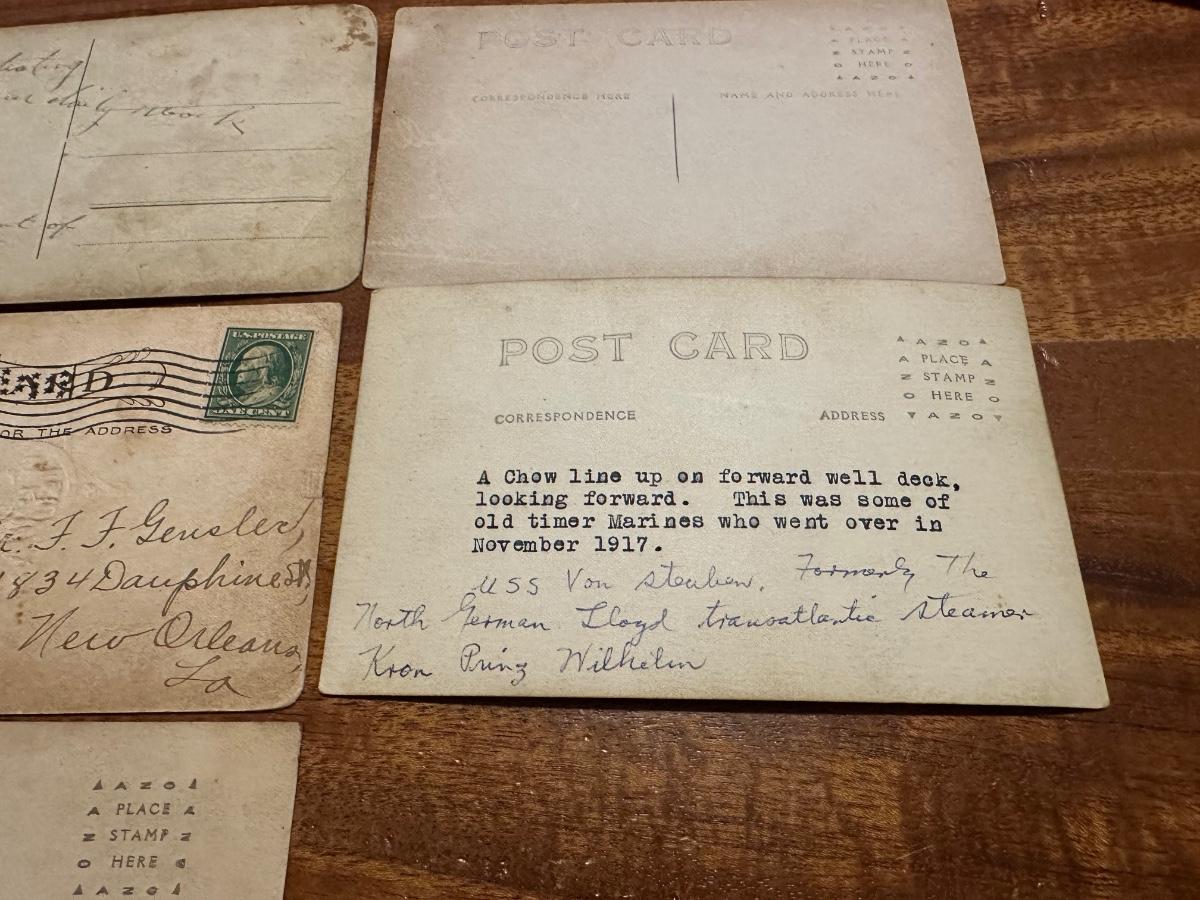 daily work
of
POST CARD
AZO
PLACE
STAMP
HERE
AZO
CORRESPONDENCE HERE
NAME AND ADDRESS HERE
U.S. POSTAGE
ONE CENT
OR THE ADDRESS
F. F. Gensler,
1834 Dauphine St,
New Orleans,
La
POST CARD
AZO
A PLACE A
Z STAMP Z
O HERE O
AZO
CORRESPONDENCE
ADDRESS
A Chow line up on forward well deck,
looking forward. This was some of
old timer Marines who went over in
November 1917.
USS Von Steuben. Formerly The
North German Lloyd transatlantic steamer
Kron Prinz Wilhelm
AZO
A PLACE A
Z STAMP Z
O HERE O
AZO